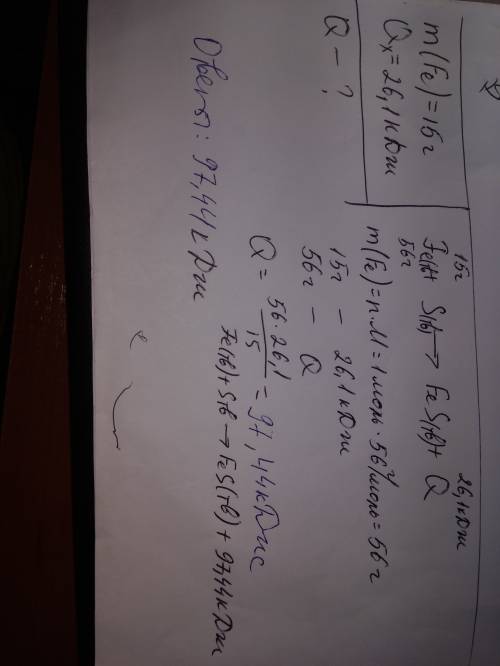 m(Fe)=15г
Qx=26,1кДж
Q – ?
15г 26,1кДж
Fe(тв)+ S(тв)→FeS(тв)+ Q
56г
m(Fe)=n·M=1моль·56г/моль=56г
15г – 26,1кДж
56г – Q
Q = 56·26,1 / 15 = 97,44кДж
Fe(тв)+Sтв→FeS(тв)+97,44кДж
Ответ: 97,44кДж